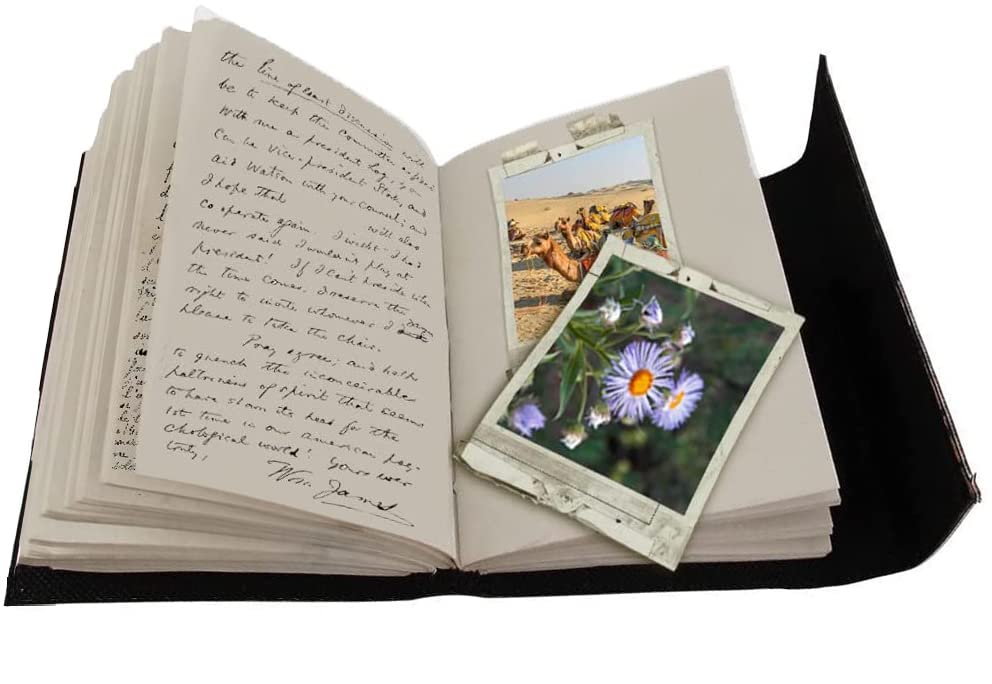 the line of least discussion will
be to keep the committee
With me as president
Can be Vice-president and
and Watson with you Council; and
I hope that will also
co operate again. I wish I had
never said I wouldn't play at
president! If I can't preside when
the time comes, I reserve the
right to invite whomever I may
please to take the chair.
Pray agree; and help
to quench the inconceivable
paltriness of spirit that seems
to have shown its head for the
1st time in our american psy-
chological world! Yours ever
truly,
Wm. James